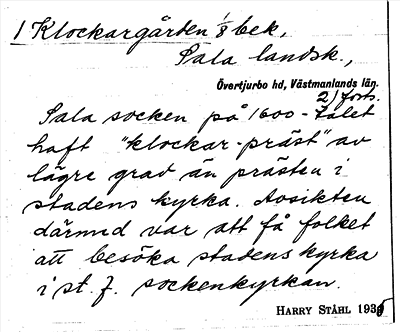 1 Klockargården 1/8 bek,
Sala landsk.,
Övertjurbo hd, Västmanlands län.
2) forts.
Sala socken på 1600-talet
haft "klockar-präst" av
lägre grad än prästen i
stadens kyrka. Avsikten
därmed var att få folket
att besöka stadens kyrka
i st. f. sockenkyrkan.
HARRY STÅHL 1935